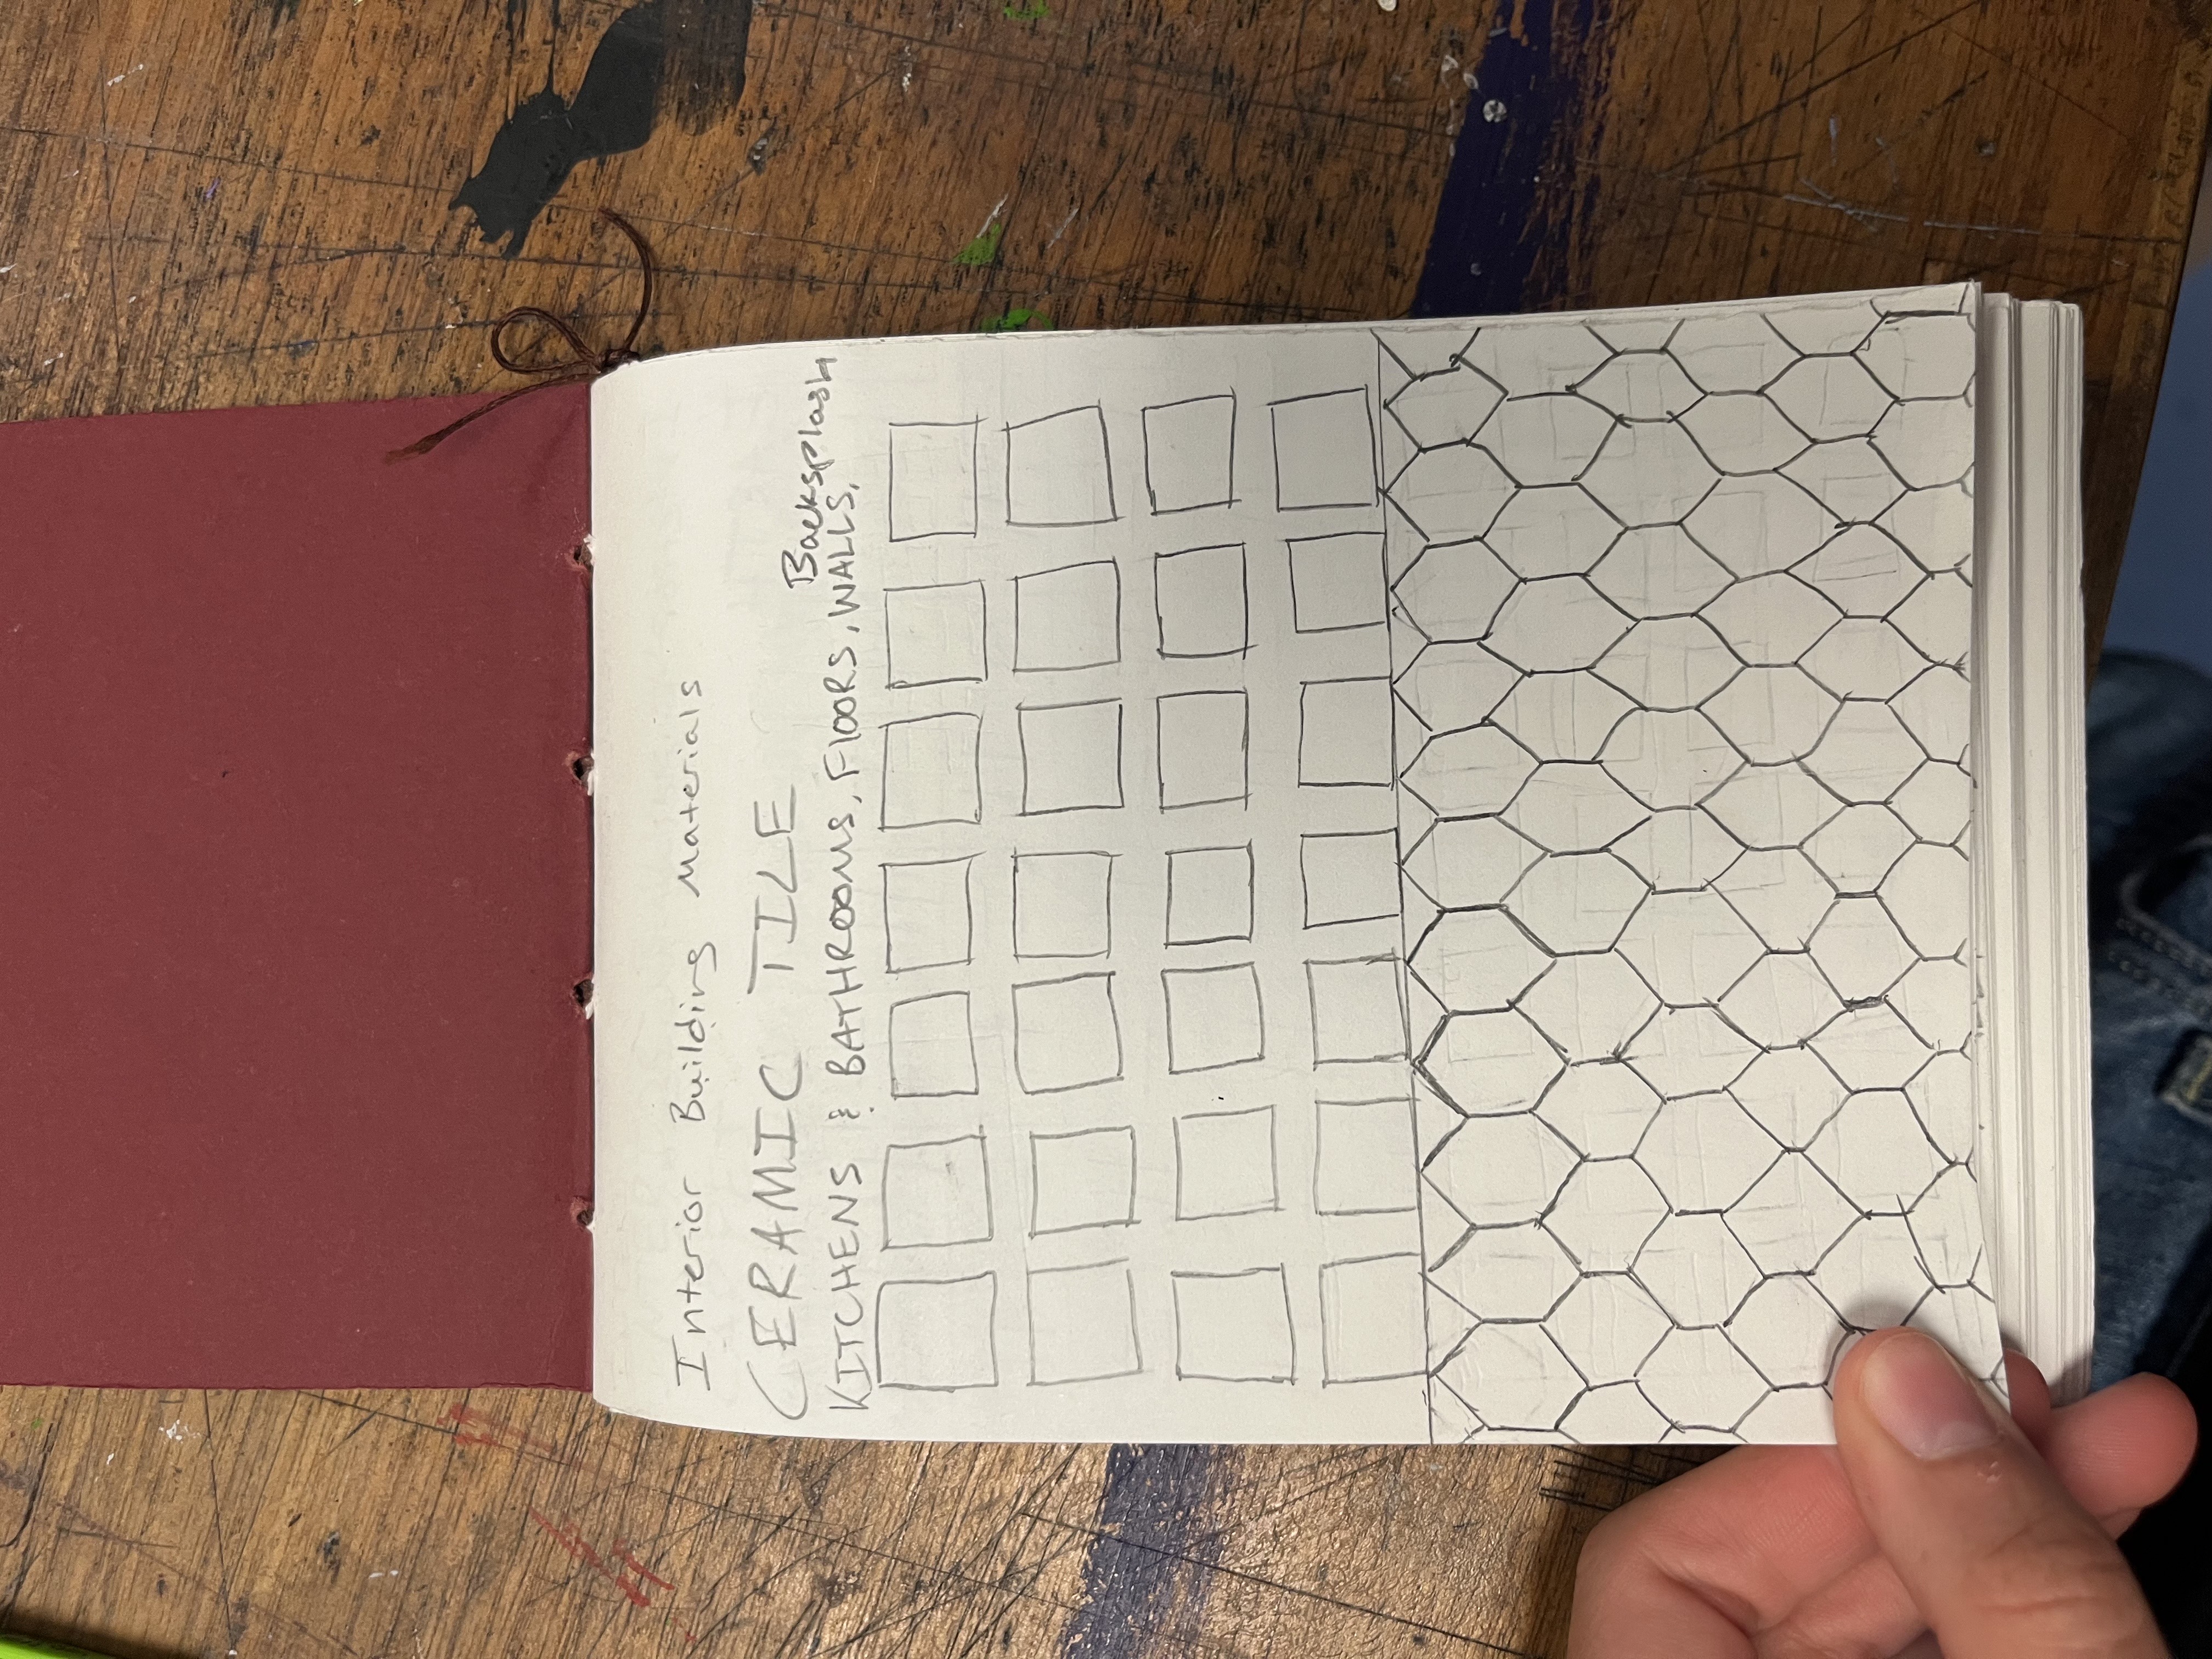 Interior Building Materials
CERAMIC TILE
KITCHENS & BATHROOMS, FlOORS, WALLS, Backsplash